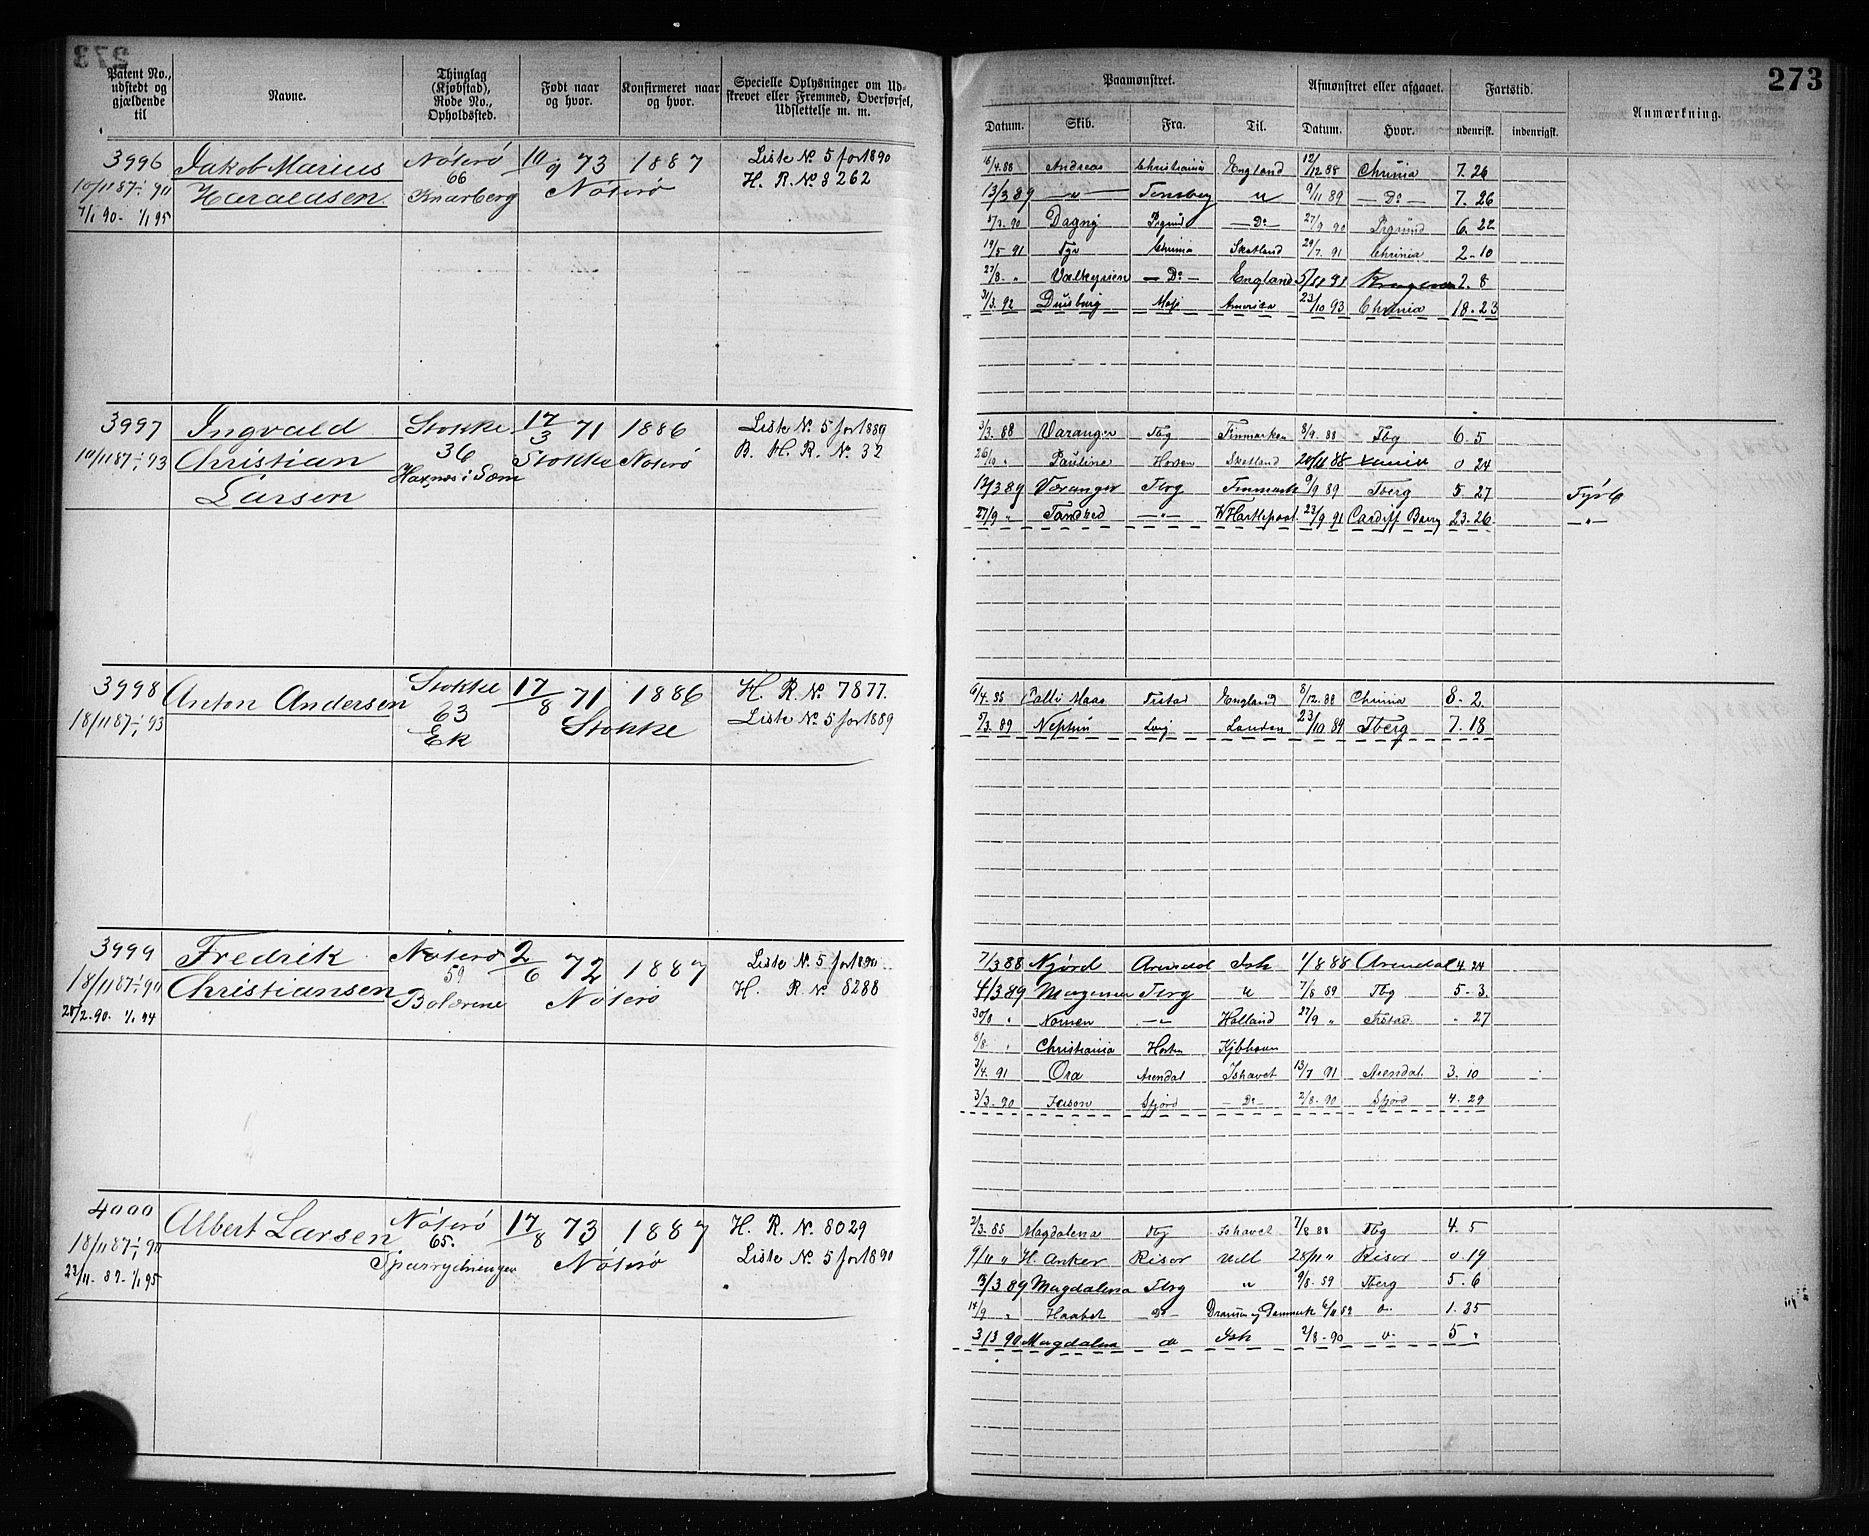 273
Patent No., udstedt og gjældende til
Navne.
Thinglag (Kjøbstad), Rode No., Opholdssted.
Født naar og hvor.
Konfirmeret naar og hvor.
Specielle Oplysninger om Udskrevet eller Fremmed, Overførsel, Udslettelse m. m.
Paamønstret.
Afmønstret eller afgaaet.
Fartstid.
Anmærkning.
Datum. Skib. Fra. Til. Datum. Hvor. udenrigsk. indenrigsk.
3996 Jakob Marius Nøterø 10/9 73 1887 Liste No. 5 for 1890
10/11 87 - 1/1 90 Haraldsen 66 Knarberg Nøterø H. R. No. 8262
7/1 90 - 1/1 95
16/4.88 Andreas Christiania England 12/12 88 Chrinia 7. 26
13/3 89 — " — Tønsberg " 9/11 89 — Do — 7. 26
Dagny Prgrund — Do — 27/9 90 Prgrund 6. 22
19/5 91 Tyr Chrinia Skotland 29/7. 91 Chrinia 2. 10
27/8 " Valkyrien — Do — England 5/11 91 2. 8
3/3. 92 Duisburg Moss Amerika 23/10 93 Chrinia 18. 23
3997 Ingvald Stokke 17/3 71 1886 Liste No. 5 for 1889
10/11 87 - 1/1 93 Christian 36 Stokke Nøterø B. H. R. No. 32
Larsen Haxnæs i Sæm
3/3. 88 Varanger Tbg Finmarken 8/9. 88 Tbg 6. 5
26/9 " Pauline Horten Skotland 20/11 88 0 24
12/3 89 Varanger Tbrg Finmark 9/9 89 Tberg 5. 27
27/9 " Tancred — " — W Hartlepool 23/9 91 Cardiff Barry 23. 26 — " —
3998 Anton Andersen Stokke 17/8 71 1886 H. R. No. 7877.
18/11 87 - 1/1 93 63 Stokke Liste No. 5 for 1889
Ek
6/4. 88 Fristad England 8/12. 88 Chrinia 8. 2.
5/3. 89 Neptun Lvig London 23/10 89 Tberg 7. 18
3999 Fredrik Nøterø 2/6 72 1887 Liste No. 5 for 1890
18/11 87 - 1/1 90 Christiansen 59 Bolærene Nøterø H. R. No. 8288
28/2. 90 - 1/1 94
7/3 88 Njörd Arendal Ish 1/8 88 Arendal 4. 24
4/3 89 Magenen Tbrg " 7/8 89 Tbg 5. 3.
30/8 " Nornen — " — Holland 27/9 " Frstad " 27
8/8 " Christiania Horten Kjbhavn
3/4. 91 Ora Arendal Ishavet 13/7 91 Arendal 3. 10
3/3. 90 Jason Sfjord — Do — 2/8. 90 Sfjord 4. 29
4000 Albert Larsen Nøterø 17/8 73 1887 H. R. No. 8029
18/11 87 - 1/1 90 65. Nøterø Liste No. 5 for 1890
22/11. 89 - 1/1 95
2/3. 88 Magdalena Tbg Ishavet 7/8 88 Tbg 4. 5
9/11 " H. Anker Risør Udl 28/11 " Risør 0. 19
3/3 89 Magdalena Tbrg " 9/8. 89 Tberg 5. 6
14/9 " Haabet — Do — Dramn og Danmark 6/11 89 1. 25
3/3 90 Magdalena do Ish 2/8. 90 5 "